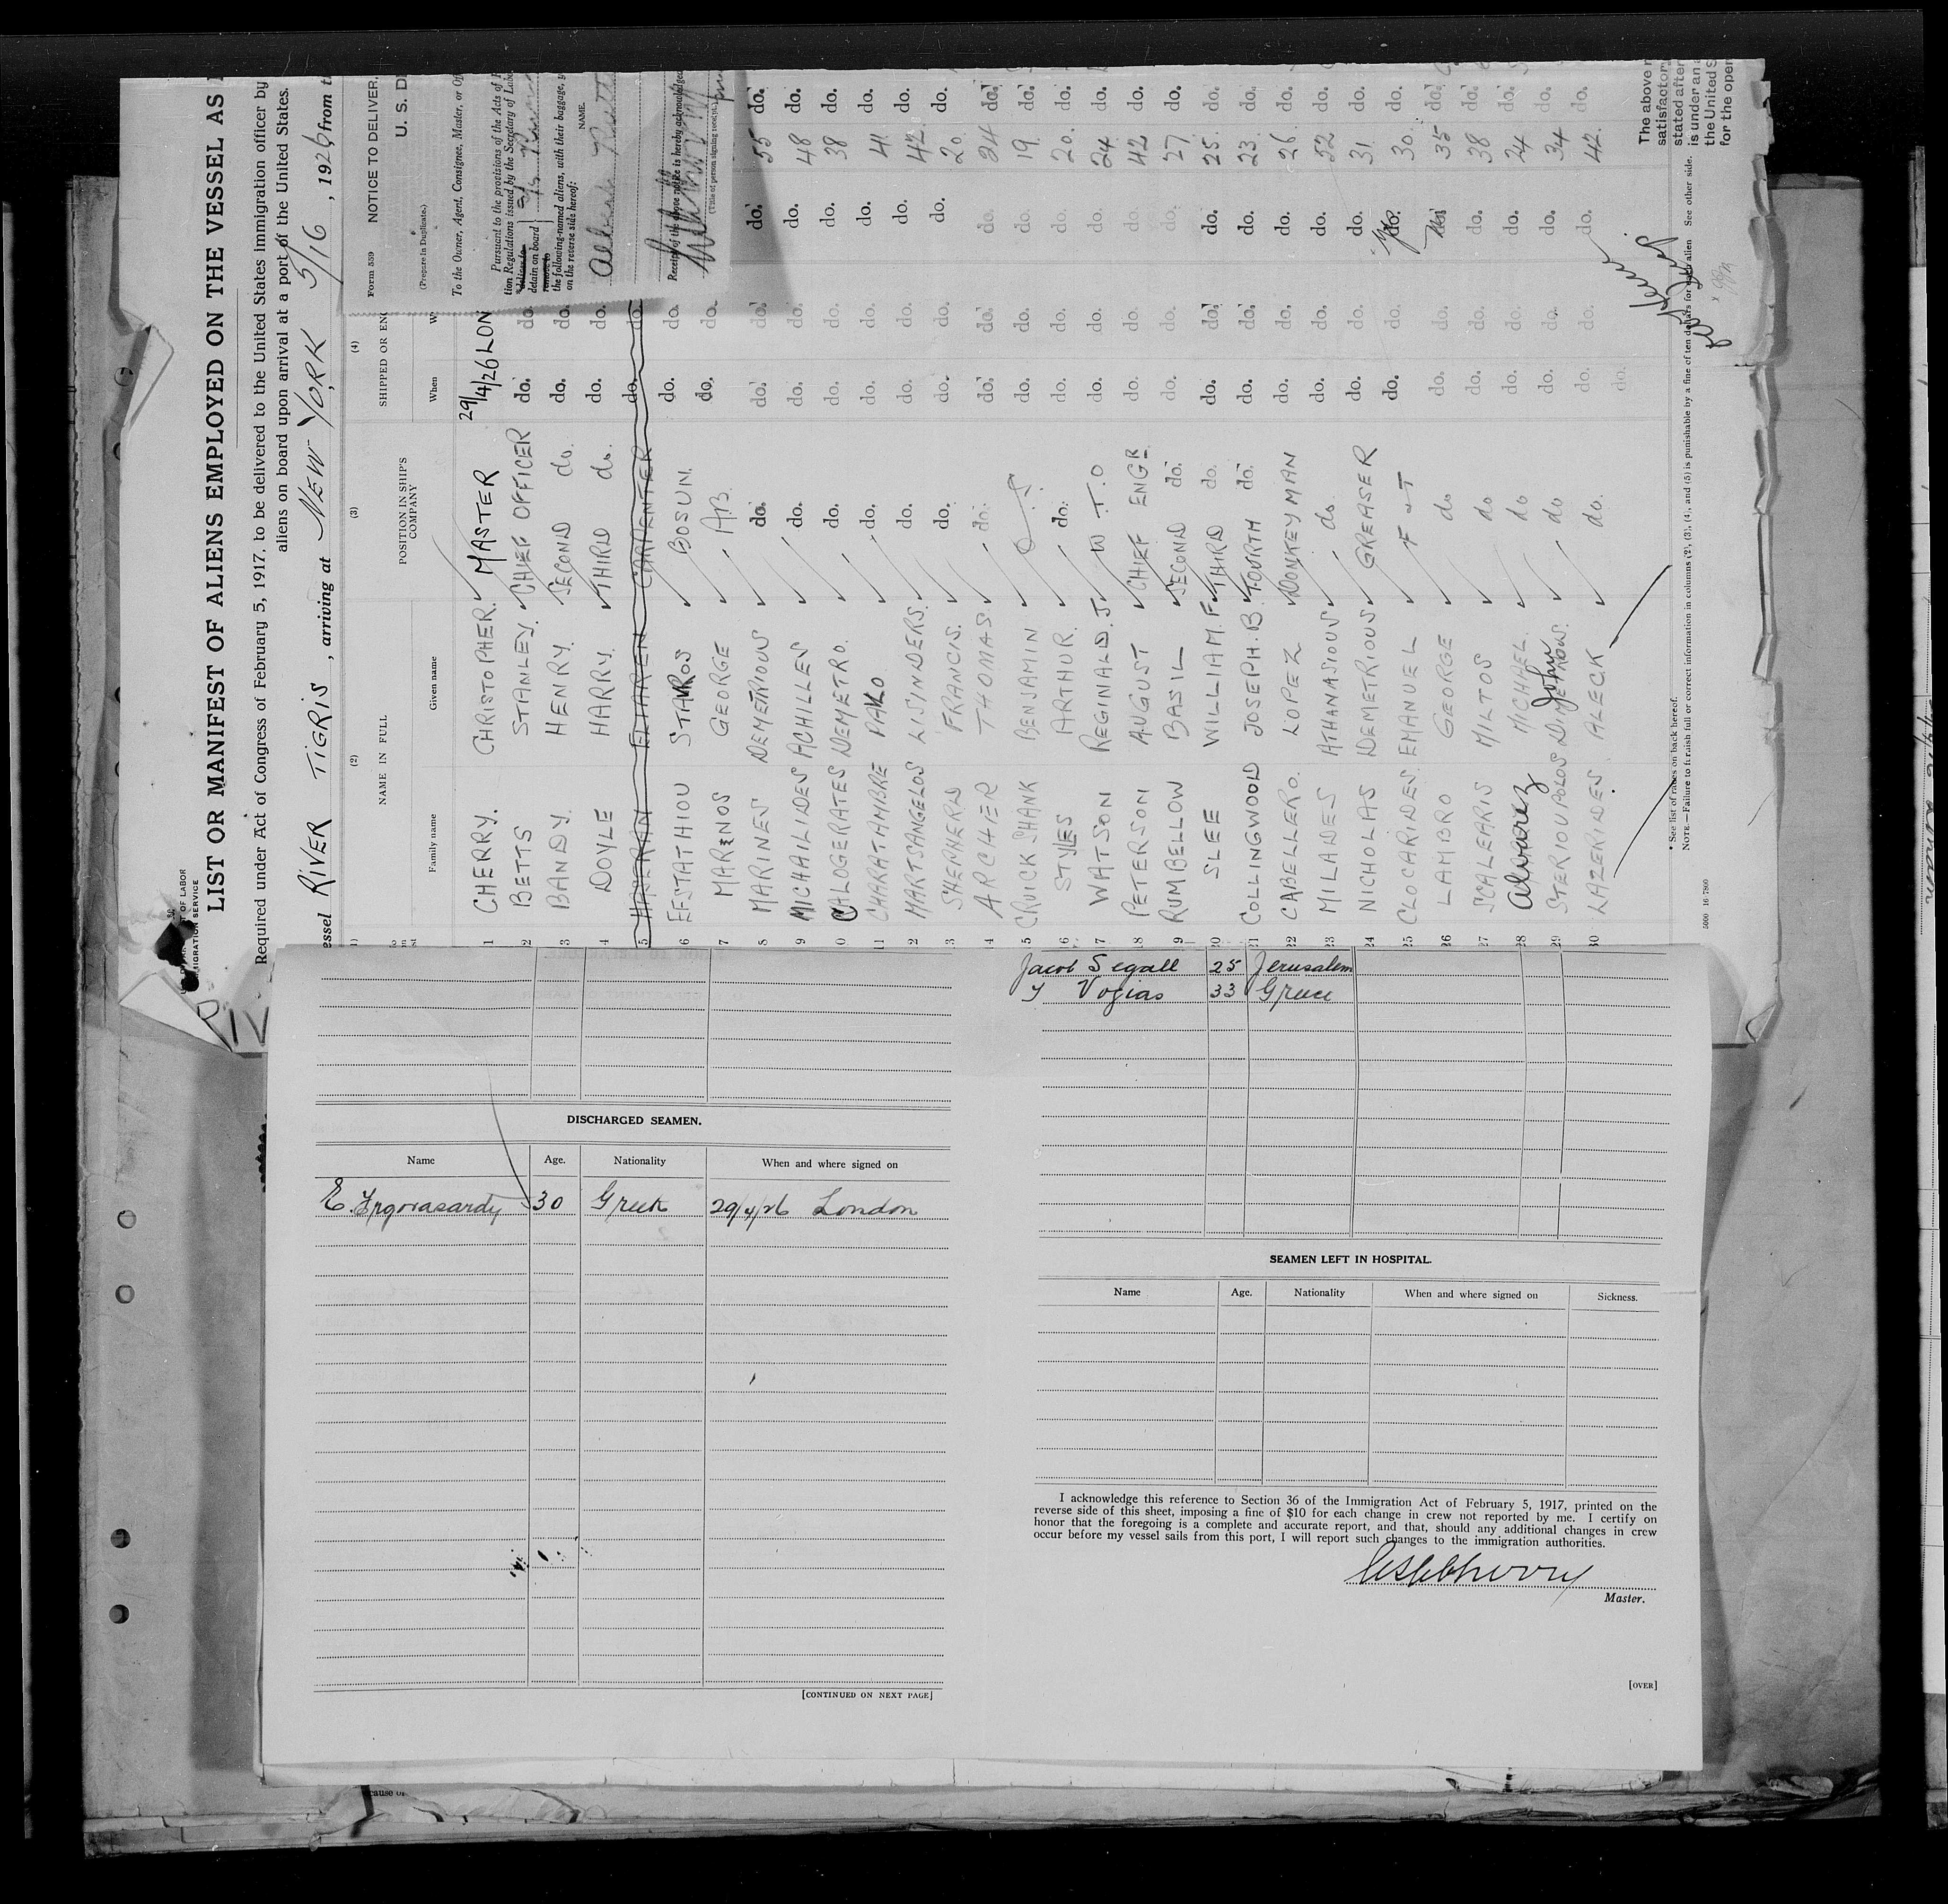 LIST OR MANIFEST OF ALIENS EMPLOYED ON THE VESSEL AS
Required under Act of Congress of February 5, 1917, to be delivered to the United States immigration officer by
aliens on board upon arrival at a port of the United States.
RIVER TIGRIS, arriving at NEW YORK 5/16, 1926, from
Form 559 NOTICE TO DELIVER,
(Prepare in Duplicate.) U. S. D
To the Owner, Agent, Consignee, Master, or Off
Pursuant to the provisions of the Acts of
tion Regulations issued by the Secretary of Labo
detain on board
the following-named aliens, with their baggage,
on the reverse side hereof:
NAME.
Receipt of the above notice is hereby acknowledged
(Title of person signing receipt.)
(2) (3) (4)
NAME IN FULL POSITION IN SHIP'S COMPANY SHIPPED OR EN
Family name Given name When
1 CHERRY. CHRISTOPHER. MASTER 29/4/26 LON
2 BETTS STANLEY. CHIEF OFFICER do. do.
3 BANDY. HENRY. SECOND do. do. do.
4 DOYLE HARRY. THIRD do. do. do.
5 CARPENTER do. do.
6 EFSTATHIOU STAVROS BOSUN. do. do.
7 MARENOS GEORGE A.B. do. do.
8 MARINES DEMETRIOUS do. do. do. do. 55 do.
9 MICHAILIDES ACHILLES do. do. do. do. 48 do.
0 CALOGERATES DEMETRO. do. do. do. do. 38 do.
11 CHARATAMBRE PAVLO do. do. do. do. 41 do.
2 MARTSANGELOS LISINDERS. do. do. do. do. 42. do.
3 SHEPHERD FRANCIS. do. do. do. do. 20. do.
14 ARCHER THOMAS. do. do. do. do. 24 do.
5 CRUICKSHANK BENJAMIN O.S. do. do. do. 19. do.
6 STYLES ARTHUR. do. do. do. do. 20. do.
7 WATSON REGINALD. J. W.T.O do. do. do. 24 do.
8 PETERSON AUGUST CHIEF ENGR. do. do. do. 42 do.
9 RUMBELLOW BASIL SECOND do. do. do. do. 27 do.
20 SLEE WILLIAM. F. THIRD do. do. do. do. 25. do.
21 COLLINGWOOD JOSEPH. B. FOURTH do. do. do. do. 23. do.
22 CABELLERO. LOPEZ DONKEYMAN do. do. do. 26. do.
23 MILADES ATHANASIOUS do. do. do. do. 52 do.
24 NICHOLAS DEMETRIOUS GREASER do. do. do. 31 do.
25 CLOCARIDES. EMANUEL F & T do. do. do. 30. do.
26 LAMBRO GEORGE do do. do. do. 35 do.
27 SCALEARIS MILTOS do do. do. do. 38 do.
28 Alvarez MICHAEL. do do. do. do. 24 do.
29 STERIOUPOLOS John do do. do. do. 34 do.
30 LAZERIDES. ALECK do. do. do. do. 42. do.
The above
satisfactory
stated after
is under an
the United S
for the oper
* See list of races on back hereof.
NOTE.—Failure to furnish full or correct information in columns (2), (3), (4), and (5) is punishable by a fine of ten dollars for each alien. See other side.
Jacob Segall 25 Jerusalem
Y Vogias 33 Greece
DISCHARGED SEAMEN.
Name Age. Nationality When and where signed on
30 Greek 29/4/26 London
[CONTINUED ON NEXT PAGE]
SEAMEN LEFT IN HOSPITAL.
Name Age. Nationality When and where signed on Sickness.
I acknowledge this reference to Section 36 of the Immigration Act of February 5, 1917, printed on the
reverse side of this sheet, imposing a fine of $10 for each change in crew not reported by me. I certify on
honor that the foregoing is a complete and accurate report, and that, should any additional changes in crew
occur before my vessel sails from this port, I will report such changes to the immigration authorities.
Master.
[OVER]